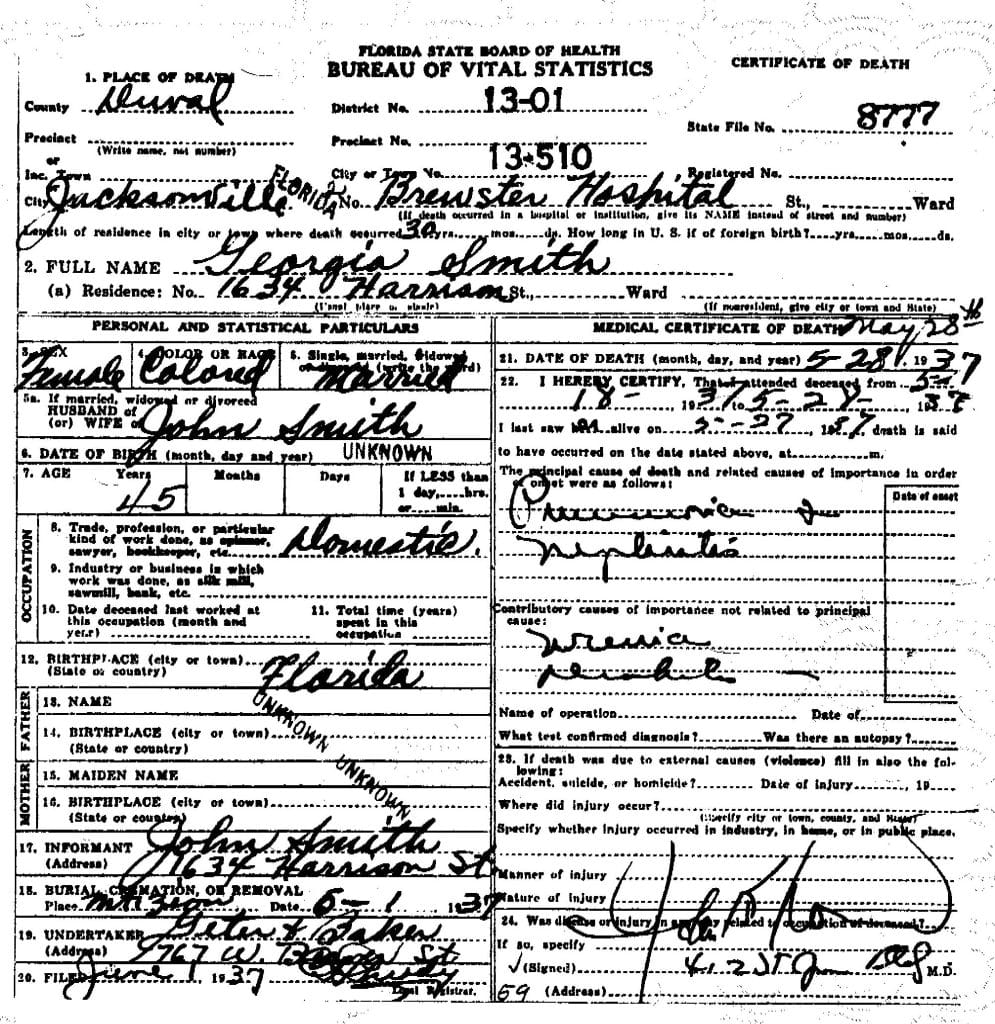 FLORIDA STATE BOARD OF HEALTH
BUREAU OF VITAL STATISTICS
CERTIFICATE OF DEATH
1. PLACE OF DEATH
County Duval
District No. 13-01
State File No. 8777
Precinct
(Write name, not number)
Precinct No.
or
Inc. Town
City or Town No. 13-510
Registered No.
City Jacksonville FLORIDA No. Brewster Hospital St., Ward
(If death occurred in a hospital or institution, give its NAME instead of street and number)
Length of residence in city or town where death occurred 30 yrs. mos. ds. How long in U. S. if of foreign birth? yrs. mos. ds.
2. FULL NAME Georgia Smith
(a) Residence: No. 1634 Harrison St., Ward
(Usual place of abode)
(If nonresident, give city or town and State)
PERSONAL AND STATISTICAL PARTICULARS
3. SEX Female
4. COLOR OR RACE Colored
5. Single, married, widowed
Married
5a. If married, widowed or divorced
HUSBAND of
(or) WIFE of John Smith
6. DATE OF BIRTH (month, day and year) UNKNOWN
7. AGE Years 45 Months Days If LESS than
1 day, hrs.
or min.
OCCUPATION
8. Trade, profession, or particular
kind of work done, as spinner,
sawyer, bookkeeper, etc. Domestic.
9. Industry or business in which
work was done, as silk mill,
sawmill, bank, etc.
10. Date deceased last worked at
this occupation (month and
year)
11. Total time (years)
spent in this
occupation
12. BIRTHPLACE (city or town)
(State or country) Florida
FATHER
13. NAME UNKNOWN
14. BIRTHPLACE (city or town)
(State or country)
MOTHER
15. MAIDEN NAME UNKNOWN
16. BIRTHPLACE (city or town)
(State or country)
17. INFORMANT John Smith
(Address) 1634 Harrison St
18. BURIAL, CREMATION, OR REMOVAL
Place Mt Zion Date 6-1 1937
19. UNDERTAKER Geter & Baker
(Address) 767 W. St
20. FILED June 1 1937
Local Registrar.
MEDICAL CERTIFICATE OF DEATH May 28th
21. DATE OF DEATH (month, day, and year) 5-28, 1937
22. I HEREBY CERTIFY, That I attended deceased from 5-
18- 1937 to 5-28- 1937
I last saw her alive on 5-27, 1937 death is said
to have occurred on the date stated above, at m.
The principal cause of death and related causes of importance in order
of onset were as follows:
Date of onset
Pneumonia
Nephritis
Contributory causes of importance not related to principal
cause:
Uremia
Name of operation Date of
What test confirmed diagnosis? Was there an autopsy?
23. If death was due to external causes (violence) fill in also the fol-
lowing:
Accident, suicide, or homicide? Date of injury , 19
Where did injury occur?
(Specify city or town, county, and State)
Specify whether injury occurred in industry, in home, or in public place.
Manner of injury
Nature of injury
24. Was disease or injury in any way related to occupation of deceased?
If so, specify
(Signed) M.D.
59 (Address)